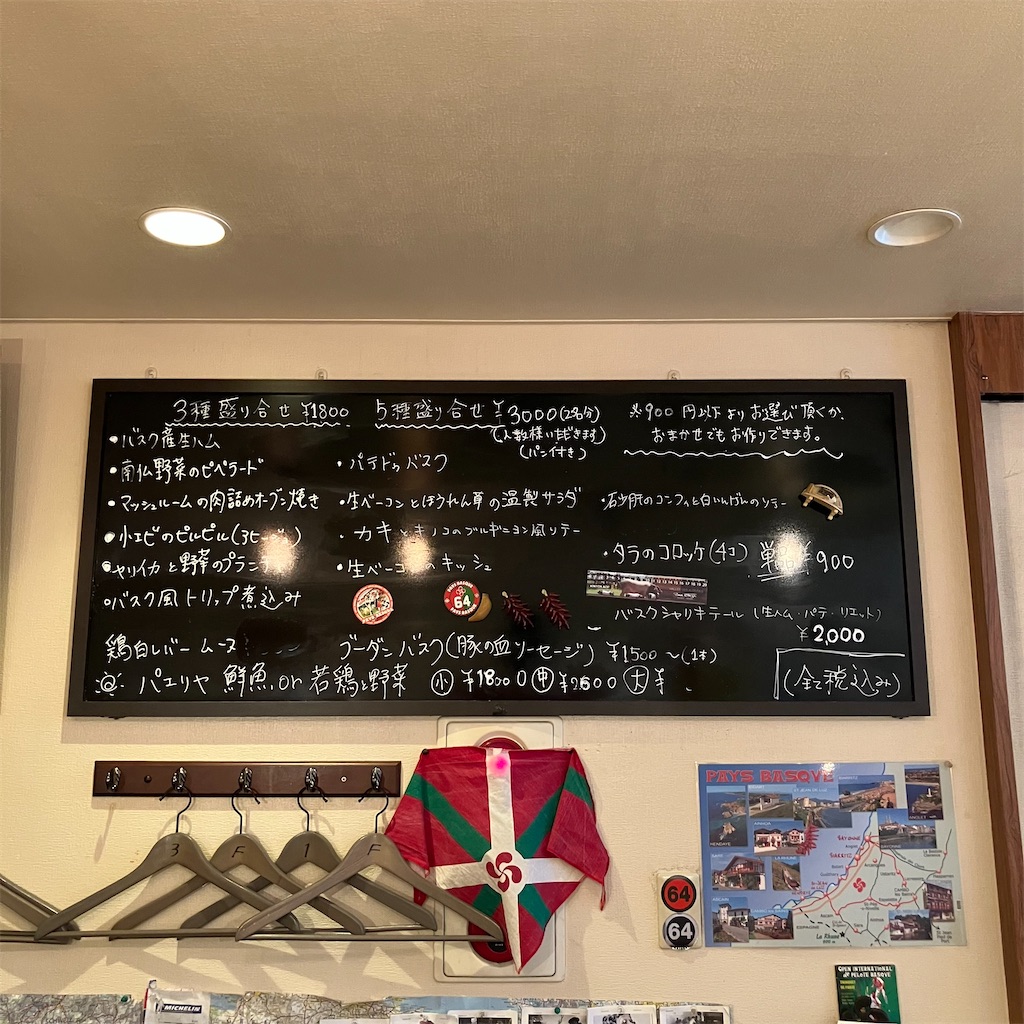 3種盛り合せ ¥1800
5種盛り合せ ¥3000(2名分)
(人数様いただきます)
(パン付き)
※900円以下よりお選び頂くか、
おまかせでもお作りできます。
・バスク産生ハム
・南仏野菜のピペラード
・マッシュルームの肉詰めオーブン焼き
・小エビのピルピル
・ヤリイカと野菜のプランチャ
・バスク風トリップ煮込み
・パテドゥバスク
・生ベーコンとほうれん草の温製サラダ
・カキとキノコのブルギニヨン風ソテー
・生ベーコンのキッシュ
・砂肝のコンフィと白いんげんのソテー
・タラのコロッケ(4コ) ¥900
バスクシャリキテール (生ハム・パテ・リエット)
¥2,000
鶏白レバームース
ブーダンバスク(豚の血ソーセージ) ¥1500〜(1本)
パエリヤ 鮮魚 or 若鶏と野菜 小 ¥1800 中 ¥2600 大 ¥
(全て税込み)
64
PAYS BASQUE
3 F 1 F
64
64
PAYS BASQUE
HENDAYE
BAYONNE
BIARRITZ
ANGLET
ESPAGNE
La Rhune
MICHELIN
OPEN INTERNATIONAL
DE PELOTE BASQUE